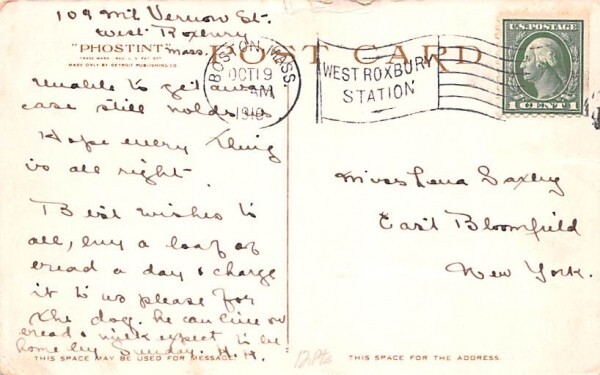 109 Mt. Vernon St.
West Roxbury
Mass.
"PHOSTINT"
POST CARD
MADE ONLY BY DETROIT PUBLISHING CO.
BOSTON, MASS.
OCT 19
AM
WEST ROXBURY
STATION
U.S. POSTAGE
1 CENT 1
Unable to get away
case still holds us
Hope every thing
is all right.
Best wishes to
all, buy a loaf of
bread a day & charge
it to us please for
the dog. he can live on
bread & milk expect to be
home by Sunday. H. H.
Miss Lena Saxby
East Bloomfield
New York.
THIS SPACE MAY BE USED FOR MESSAGE.
THIS SPACE FOR THE ADDRESS.